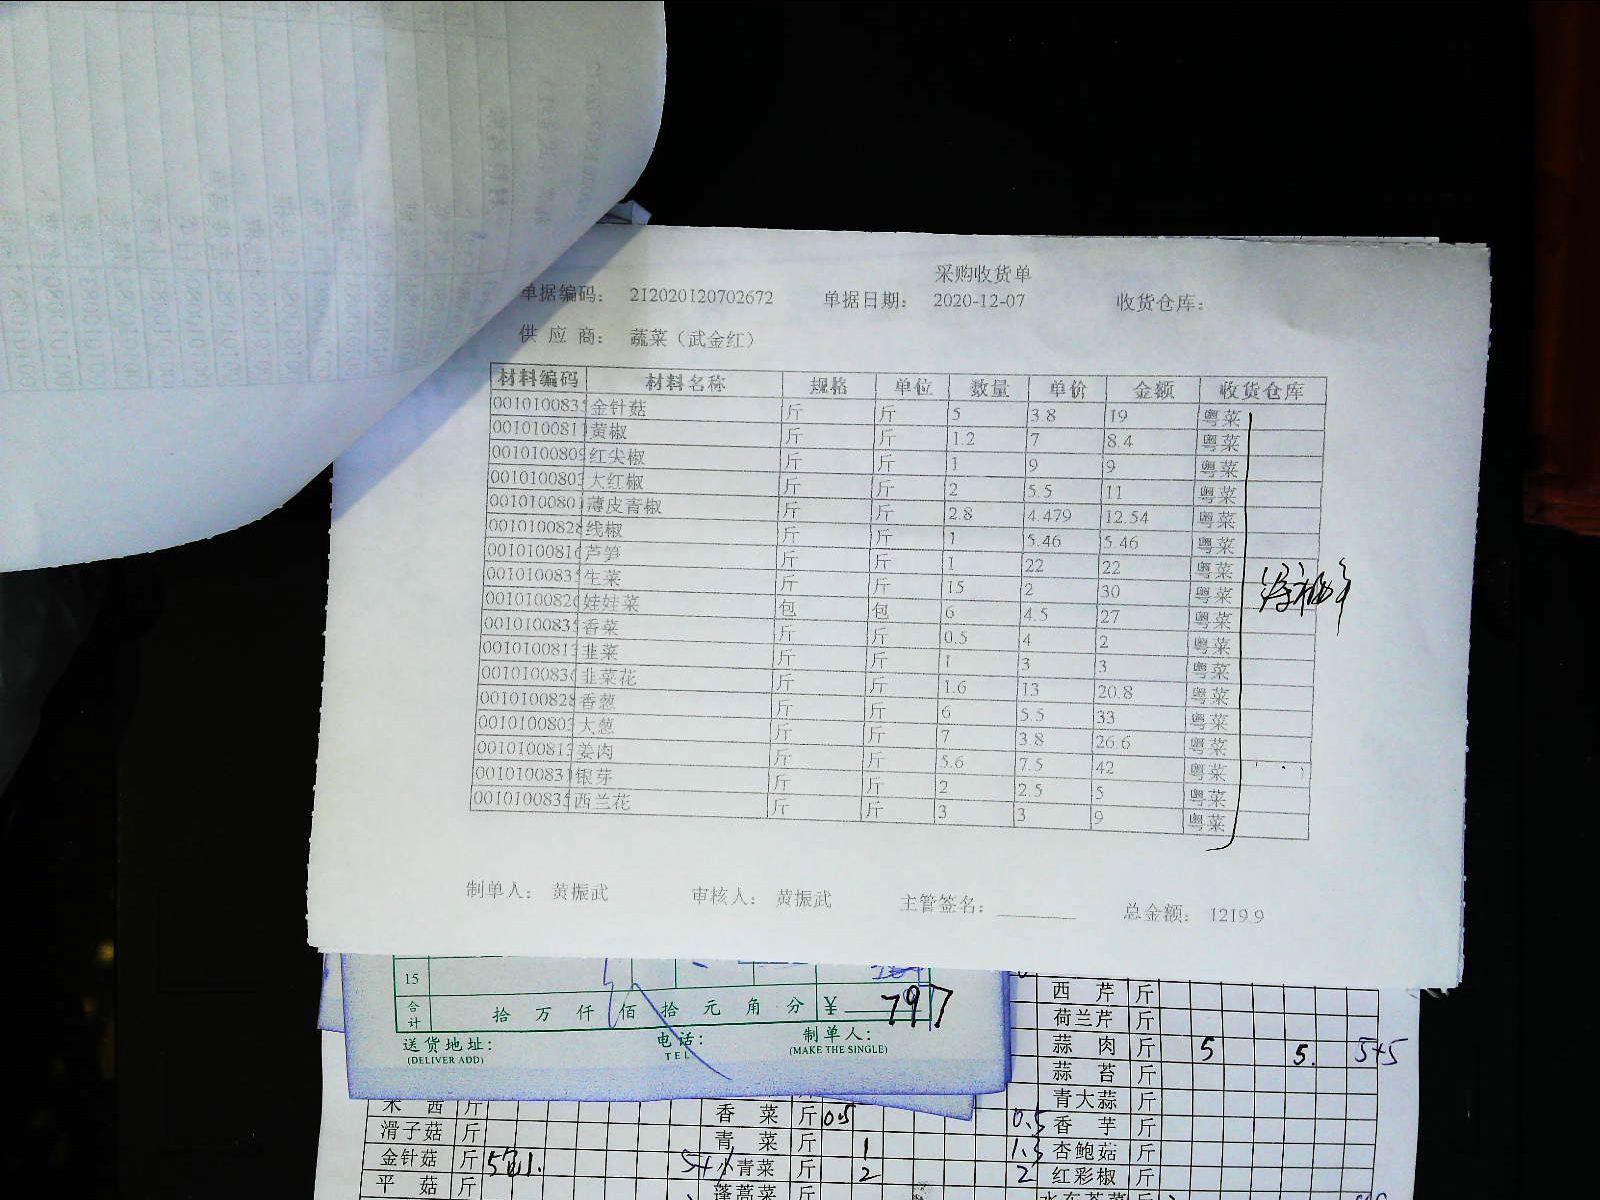 采购收货单
单据编码： 212020120702672 单据日期： 2020-12-07 收货仓库：
供 应 商： 蔬菜（武金红）
材料编码 材料名称 规格 单位 数量 单价 金额 收货仓库
0010100835 金针菇 斤 斤 5 3.8 19 粤菜
0010100811 黄椒 斤 斤 1.2 7 8.4 粤菜
0010100809 红尖椒 斤 斤 1 9 9 粤菜
0010100803 大红椒 斤 斤 2 5.5 11 粤菜
0010100801 薄皮青椒 斤 斤 2.8 4.479 12.54 粤菜
0010100828 线椒 斤 斤 1 5.46 5.46 粤菜
0010100816 芦笋 斤 斤 1 22 22 粤菜
0010100835 生菜 斤 斤 15 2 30 粤菜
0010100826 娃娃菜 包 包 6 4.5 27 粤菜
0010100835 香菜 斤 斤 0.5 4 2 粤菜
0010100813 韭菜 斤 斤 1 3 3 粤菜
0010100836 韭菜花 斤 斤 1.6 13 20.8 粤菜
0010100828 香葱 斤 斤 6 5.5 33 粤菜
0010100803 大葱 斤 斤 7 3.8 26.6 粤菜
0010100813 姜肉 斤 斤 5.6 7.5 42 粤菜
0010100831 银芽 斤 斤 2 2.5 5 粤菜
0010100835 西兰花 斤 斤 3 3 9 粤菜
制单人： 黄振武 审核人： 黄振武 主管签名： 总金额： 1219.9
15
合计 拾 万 仟 佰 拾 元 角 分 ￥ 797
送货地址： 电话： 制单人：
(DELIVER ADD) TEL (MAKE THE SINGLE)
西 芹 斤
荷兰芹 斤
蒜 肉 斤 5 5. 5+5
蒜 苔 斤
青大蒜 斤
香 菜 斤 0.5 0.5 香 芋 斤
滑子菇 斤 青 菜 斤 1 1.3 杏鲍菇 斤
金针菇 斤 小青菜 斤 2 2 红彩椒 斤
平 菇 斤 蓬蒿菜 斤